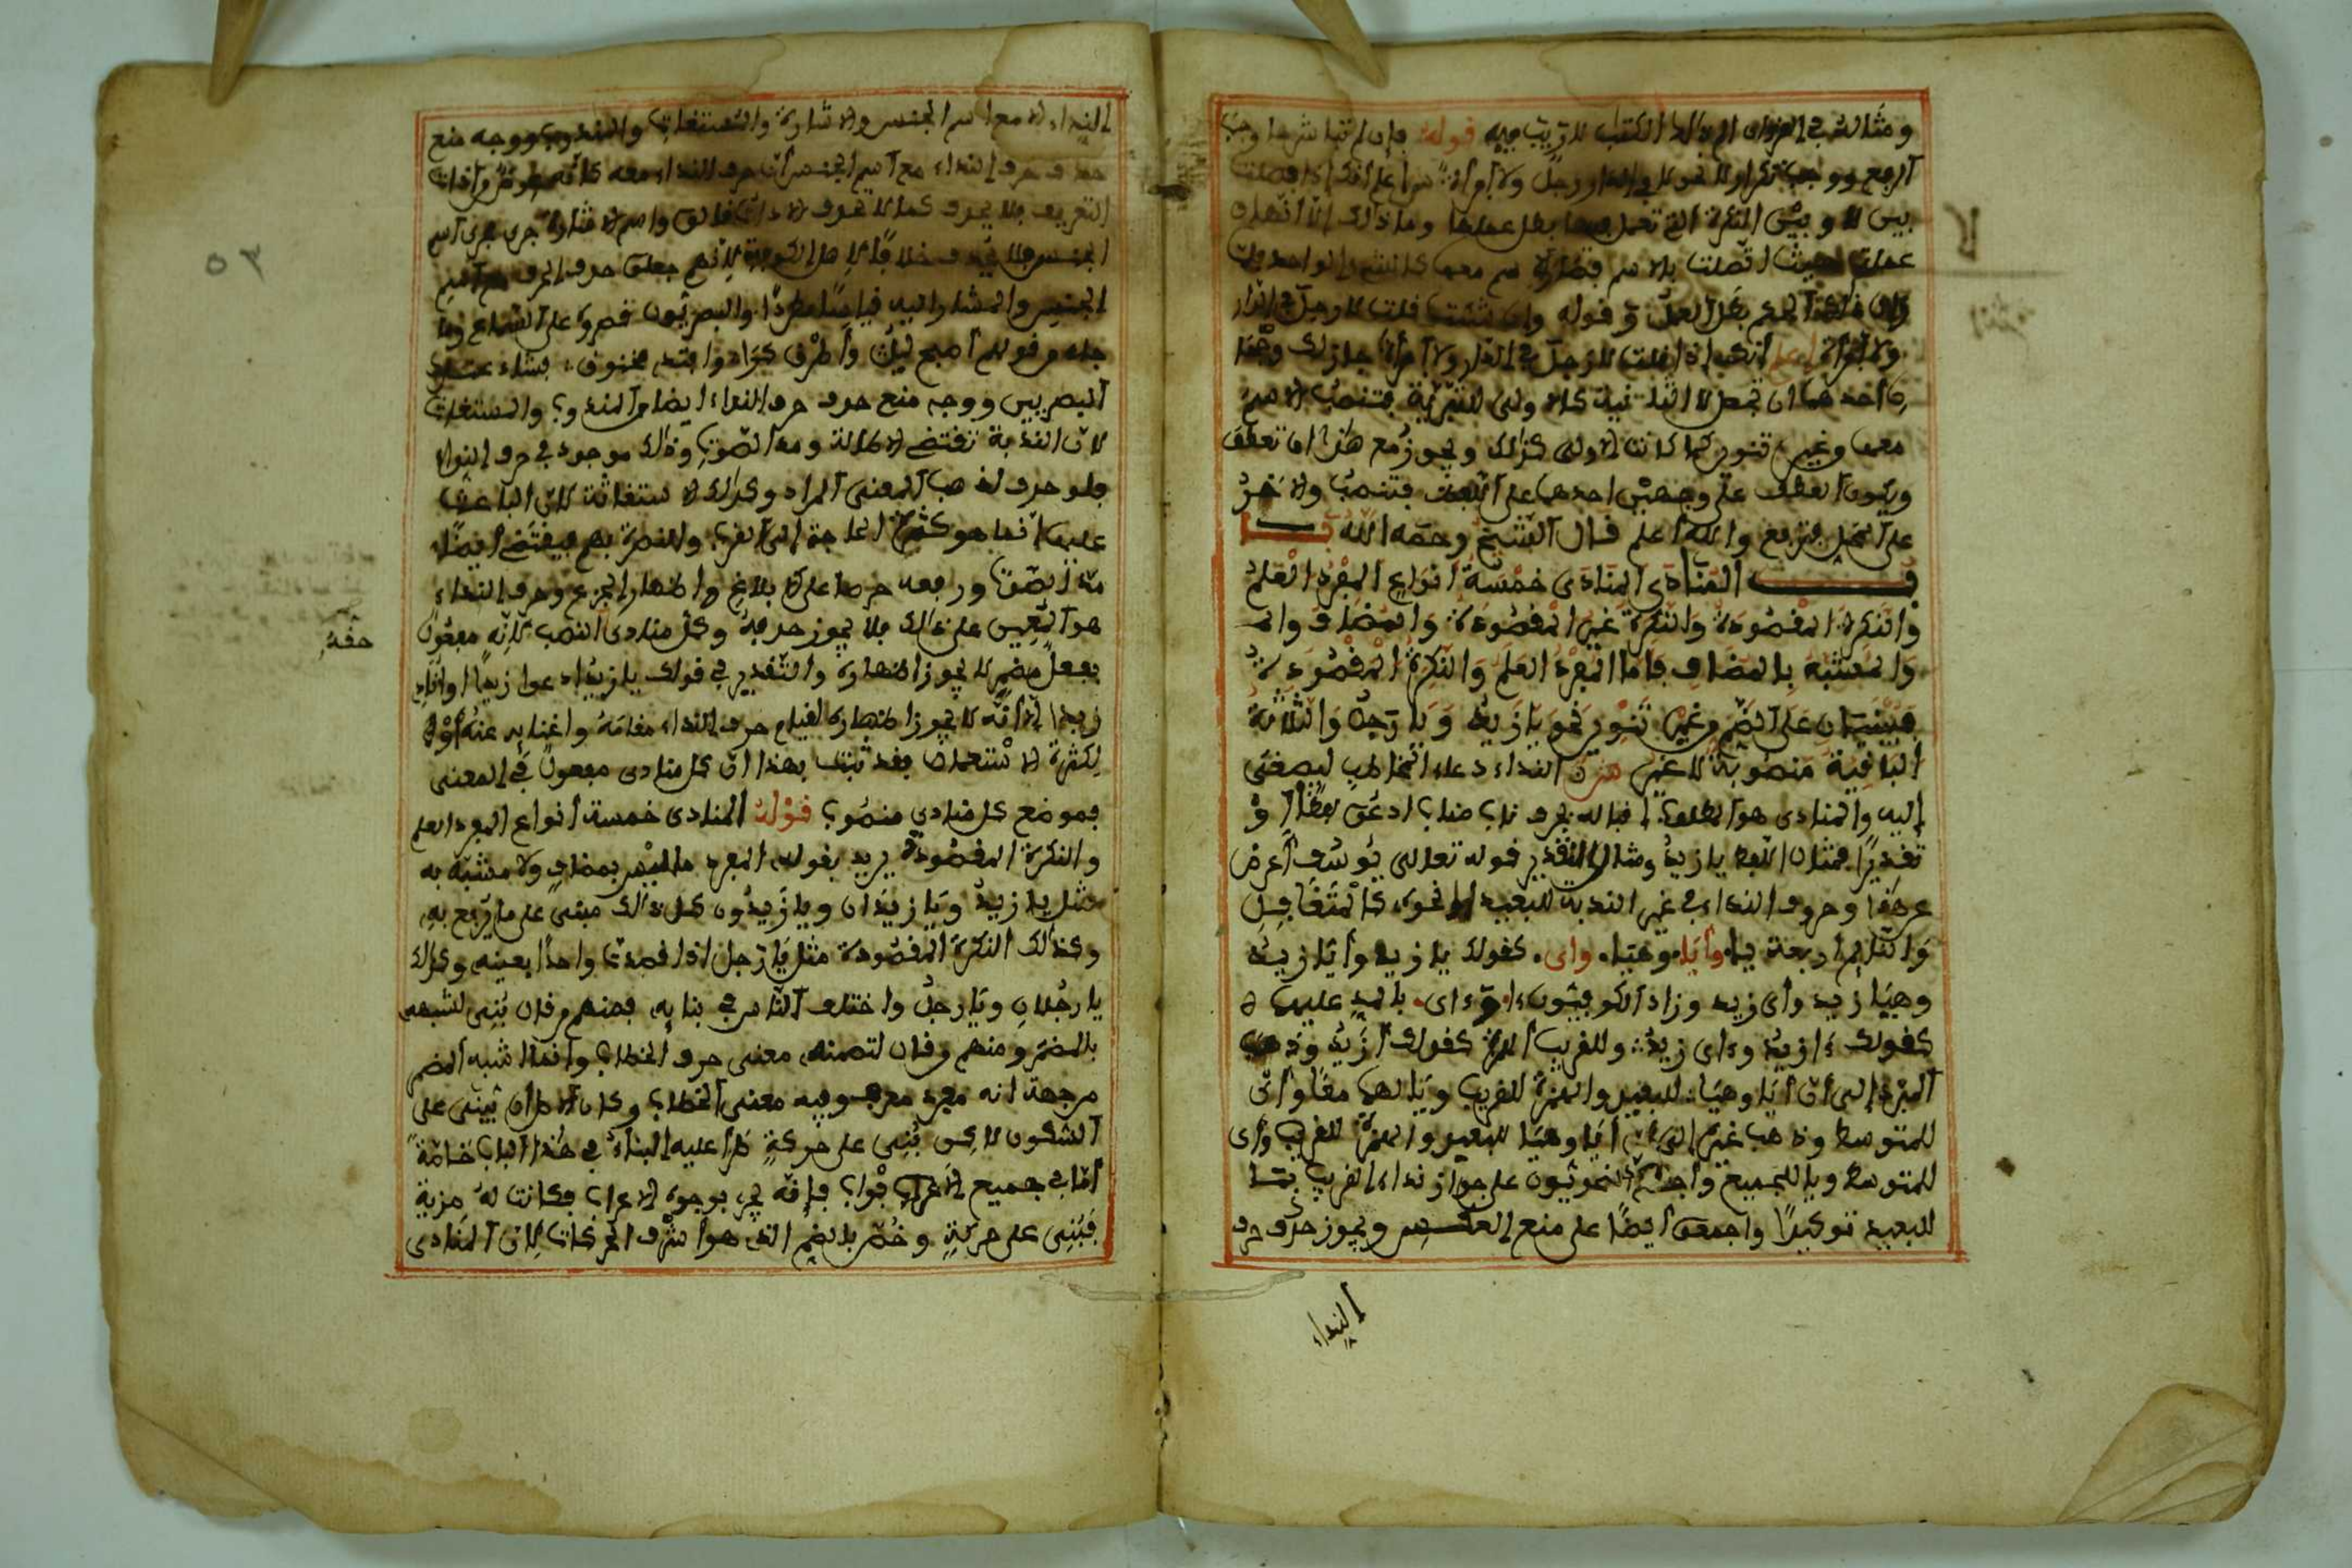 ومثاله في القرءان الم ذلك الكتب لا ريب فيه قوله فإن لم تباشرها وجب
الرفع ووجب تكرار لا نحو لا في الدار رجل ولا امرأة اعلم أنك إذا فصلت
بين لا وبين النكرة التي تعمل فيها بطل عملها وما ذلك إلا أنها
عملت حيث اتصلت بالاسم فصارت معها كالشيء الواحد
بطل العمل قوله وإن شئت قلت لا رجل في الدار
ولا امرأة اعلم أنك إذا قلت لا رجل في الدار ولا امرأة جاز لك
أحدهما أن تجعل لا الثانية كالأولى للتبرية فتنصب الاسم
معها بغير تنوين كما كانت الأولى كذلك ويجوز مع هذا أن تعطف
ويكون العطف على وجهين احدهما على اللفظ فتنصب والاخر
على المحل فترفع والله أعلم قال الشيخ رحمه الله
بـاب المنادى المنادى خمسة أنواع المفرد العلم
والنكرة المقصودة والنكرة غير المقصودة والمضاف وا
والمشبه بالمضاف فاما المفرد العلم والنكرة المقصودة
فيبنيان على الضم من غير تنوين نحو يا زيد ويا رجل والثلاثة
الباقية منصوبة لا غير النداء دعاء المخاطب ليصغى
إليه والمنادى هو المطلوب إقباله بحرف ناب مناب ادعو لفظا أو
تقديرا فمثال اللفظ يا زيد ومثال التقدير قوله تعالى يوسف أعرض
عن هذا وحروف النداء في غير الندبة للبعيد أو نحوه كالمتغافل
والنائم أربعة يا وأيا وهيا وأي كقولك يا زيد وأيا زيد
وهيا زيد وأي زيد وزاد الكوفيون ءا وءاي بالمد عليها
كقولك ءا زيد وءاي زيد وللقريب الهمزة كقولك أزيد وذهب
المبرد إلى أن أيا وهيا للبعيد والهمزة للقريب ويا لهما معا وأي
للمتوسط وذهب غيره إلى أن أيا وهيا للبعيد والهمزة للقريب وأي
للمتوسط ويا للجميع وأجمع النحويون على جواز نداء القريب بما
للبعيد توكيدا واجمعوا أيضا على منع العكس ويجوز حذف حرف
النداء
النداء إلا مع اسم الجنس والإشارة والمستغاث والمندوب ووجه منع
حذف حرف النداء مع اسم الجنس أن حرف النداء معه كأنه عوض من أداة
التعريف فلا يحذف كما لا تحذف الأداة واسم الإشارة جرى مجرى اسم
الجنس فلا يحذف خلافا لأهل الكوفة لأنهم جعلوا حذف الحرف مع اسم
الجنس والمشار إليه قياسا مطردا والبصريون قصروه على السماع وما
جاء من قولهم أصبح ليل وأطرق كرا وافتد مخنوق فشاذ عند
البصريين ووجه منع حذف حرف النداء أيضا من المندوب والمستغاث
لأن الندبة تقتضي الإطالة ومد الصوت وذلك موجود في حرف النداء
فلو حذف لذهب المعنى المراد وكذلك الاستغاثة لأن الباعث
عليها إنما هو شدة الحاجة إلى الغوث والنصرة فهو يقتضي أيضا
مد الصوت ورفعه حرصا على الإبلاغ وإظهار الجزع وحرف النداء
هو المعين على ذلك فلا يجوز حذفه وكل منادى النصب لأنه مفعول
حقه
بفعل مضمر لا يجوز إظهاره والتقدير في قولك يا زيد ادعوا زيدا أو أنادي
زيدا إلا أنه لا يجوز إظهاره لقيام حرف النداء مقامه وإغنائه عنه أو
لكثرة الاستعمال فقد ثبت بهذا أن كل منادى مفعول في المعنى
فموضع كل منادى منصوب قوله المنادى خمسة أنواع المفرد العلم
والنكرة المقصودة يريد بقوله المفرد ما ليس بمضاف ولا مشبه به
مثل يا زيد ويا زيدان ويا زيدون كل ذلك مبني على ما يرفع به
وكذلك النكرة المقصودة مثل يا رجل إذا قصدت واحدا بعينه وكذلك
يا رجلان ويا رجل واختلف الناس في بنائه فمنهم من قال بني لشبهه
بالمضمر ومنهم من قال لتضمنه معنى حرف الخطاب وإنما أشبه المضمر
من جهة أنه مفرد معرفة وفيه معنى الخطاب وكان الأصل أن يبنى على
السكون لاكن بني على حركة طرأ عليه البناء في هذا الباب خاصة
أما في جميع الأبواب فإنه يجرى بوجوه الإعراب فكانت له مزية
فبني على حركة وخص بالضم الذي هو أشرف الحركات لأن المنادى
٥٣